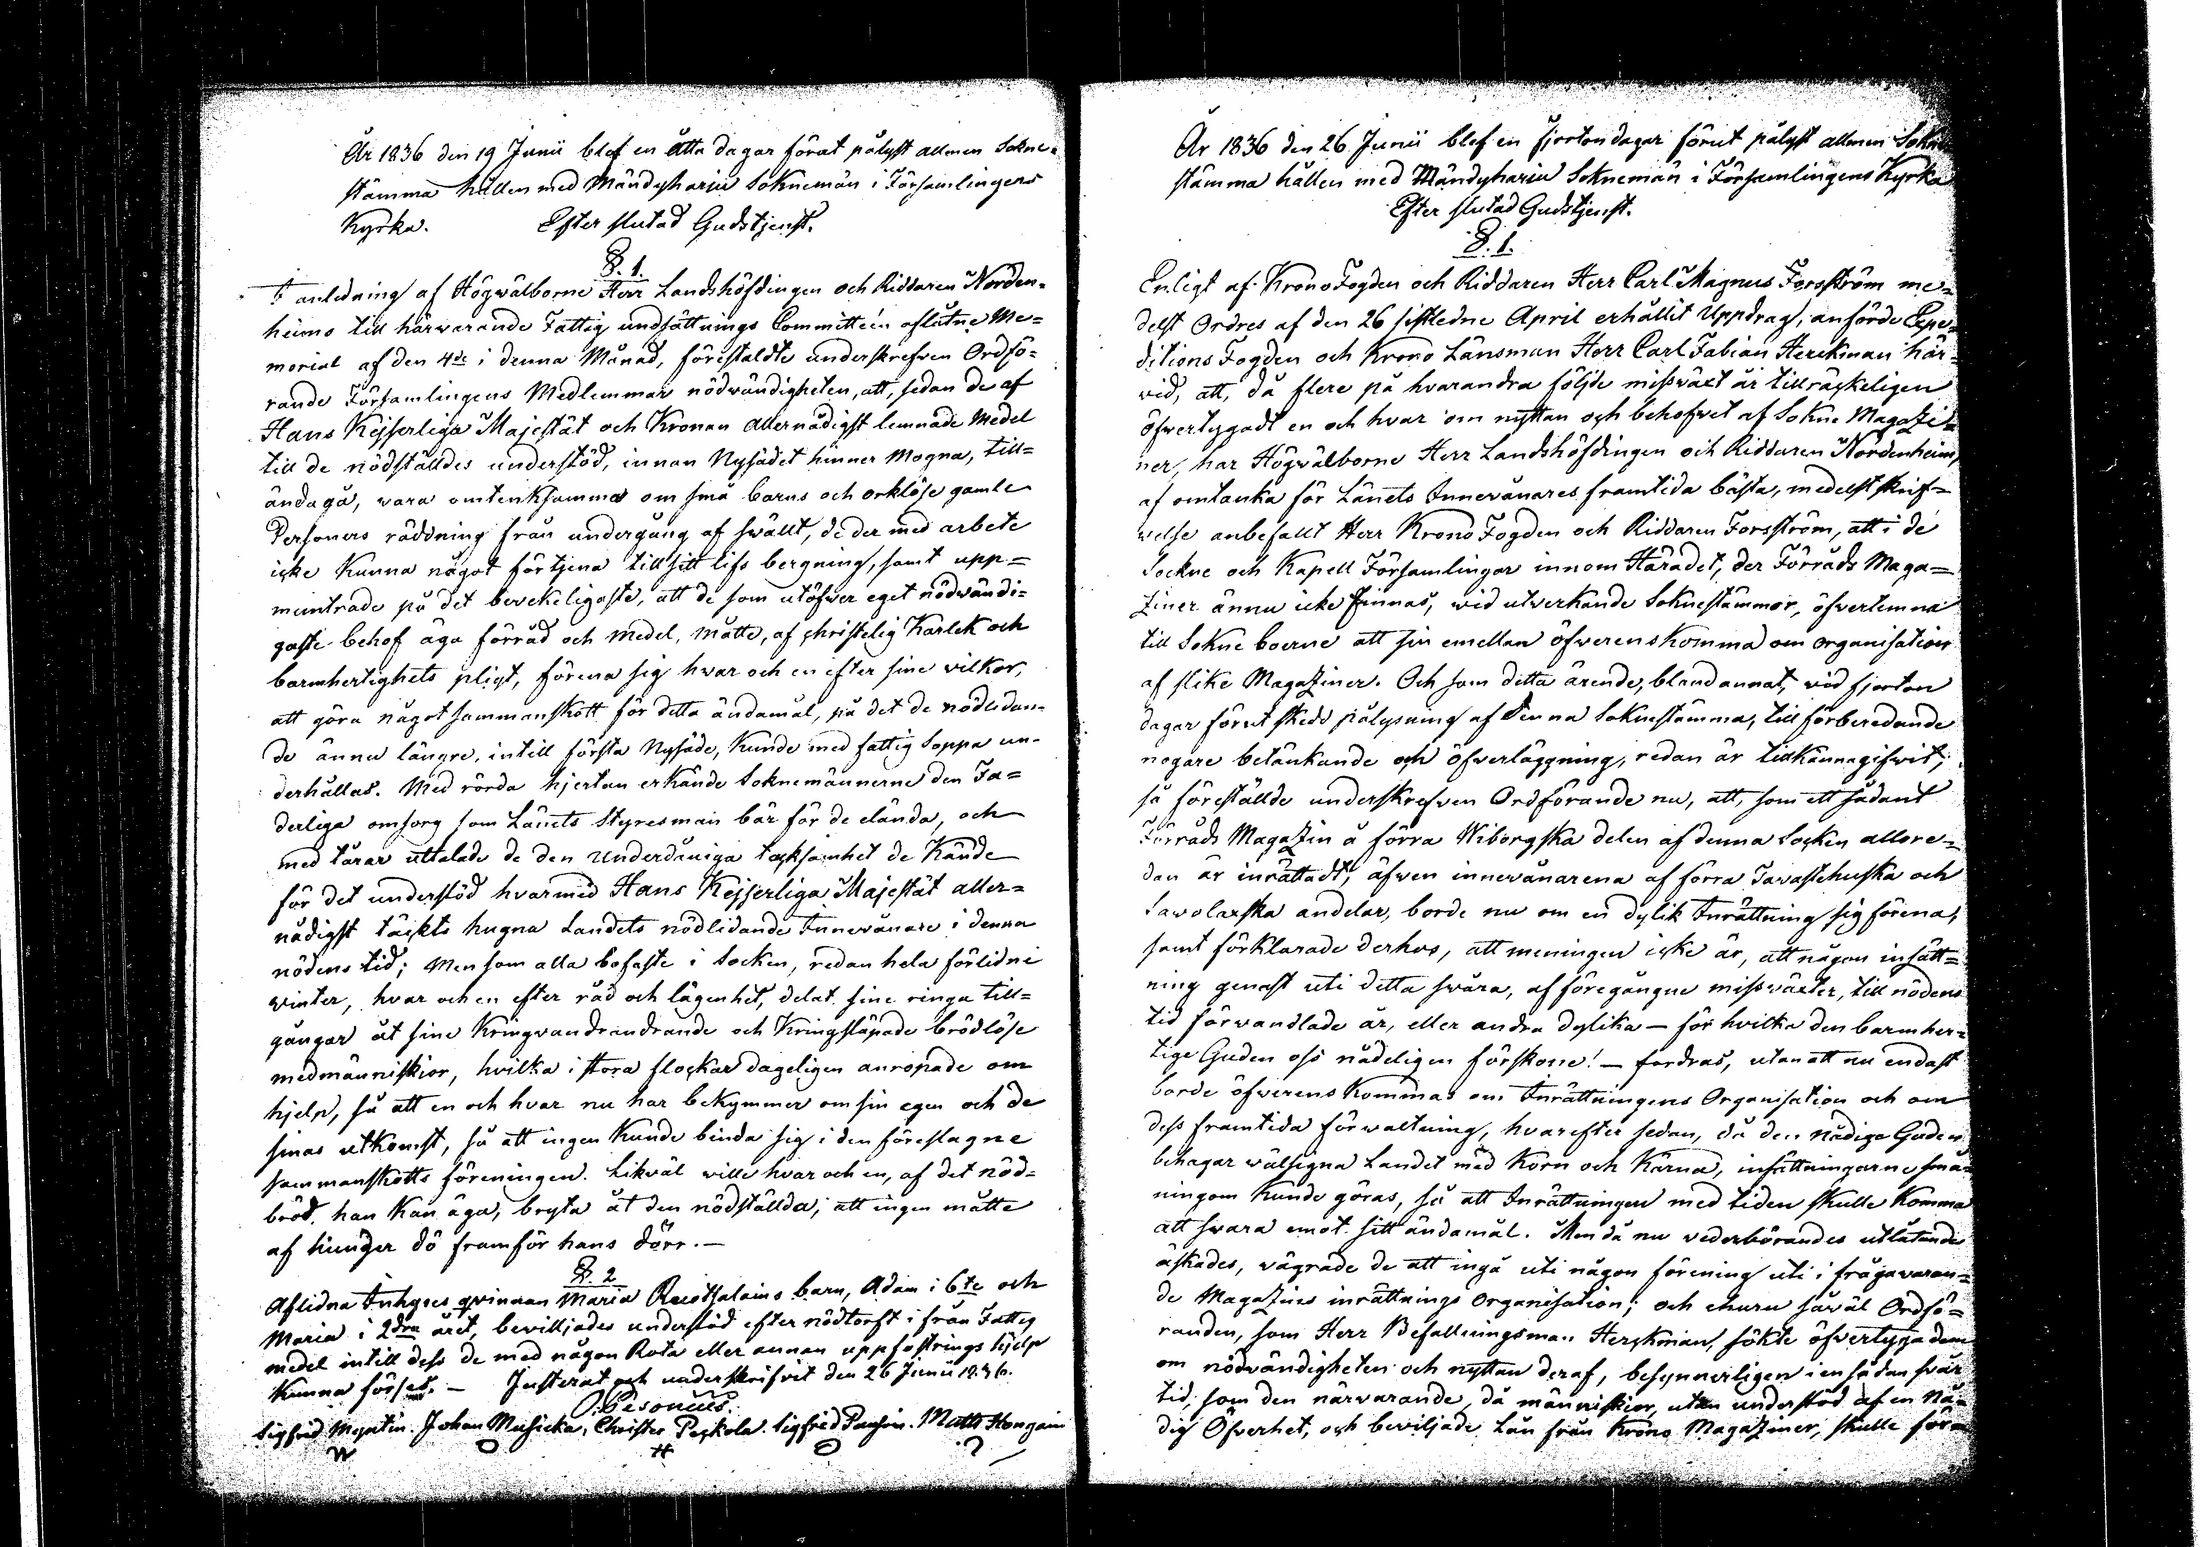 År 1836 den 19 Junii blef en åtta dagar förut pålyst allmen Sokne-
stämma hållen med Mändyharju Soknemän i Församlingens
Kyrka. Efter slutad Gudstjenst.
§. 1.
I anledning af Högwälborne Herr Landshöfdingen och Riddaren Norden-
heims till härvarande Fattig undsättnings Committeèn aflåtne Me=
morial af den 4de i denna Månad, föreställdte underskrefven Ordfö=
rande Församlingens Medlemmar nödwändigheten, att, sedan de af
Hans Kejserliga Majestät och Kronan Allernådigst lemnade Medel
till de nödställdes understöd, innan Nysädet hinner Mogna, till=
ändagå, wara omtenksamma om små barns och orklöse gamle
Personers räddning från undergång af swällt, de der med arbete
icke kunna något förtjena till sitt lifs bergning, samt upp=
muntrade på det bevekeligaste, att de som utöfwer eget nödwändi=
gaste behof äga förråd och medel, måtte, af christelig Kärlek och
barmhertighets pligt, förena sig hwar och en efter sine vilkor,
att göra något sammanskott för detta ändamål, på det de nödlidan-
de ännu längre, intill första Nysäde, kunde med fattig Soppa un-
derhållas. Med rörda hjertan erkände Soknemännerne den Fa=
derliga omsorg som Länets Styresman bär för de elända, och
med tårar uttalade de den underdåniga tacksamhet de kände
för det understöd hvarmed Hans Kejserliga Majestät aller=
nådigst täckts hugna Landets nödlidande Innevånare i denna
nödens tid; Men som alla bofaste i Socken, redan hela förlidne
winter, hvar och en efter råd och lägenhet, delat sine ringa till=
gångar åt sine Kringvandrandrande och Kringsläpade brödlöse
medmänniskior, hvilka i stora flockar dageligen anropade om
hjelp, så att en och hvar nu har bekymmer om sin egen och de
sinas utkomst, så att ingen kunde binda sig i den föreslagne
sammanskotts föreningen. Likväl wille hvar och en, af det nöd=
bröd han kan äga, bryta åt den nödställda, att ingen måtte
af hunger dö framför hans dörr.—
§. 2
Aflidna Inhyses qvinnan Maria barn, Adam i 6te och
Maria i 2dra året, beviljades understöd efter nödtorft i från Fattig
medel intill dess de med någon Rota eller annan uppfostrings hjelp
kunna förses. — Justerat och underskrifvit den 26 Junii 1836.
Pesonius.
Sigfrid Myntin. Johan Musicka, Christer Peckola. Sigfred Pansin. Matts Hongain
År 1836 den 26 Junii blef en fjorton dagar förut pålyst allmen Sokne
stämma hållen med Mändyharju Soknemän i Församlingens Kyrka
Efter slutad Gudstjenst.
§. 1.
Enligt af KronoFogden och Riddaren Herr Carl Magnus Forsström me=
delst Ordres af den 26 sistledne April erhållit Uppdrag, anförde Expe=
ditions Fogden och Krono Länsman Herr Carl Fabian Herckman här=
wid, att, då flere på hvarandra följde missväxt år tillräckeligen
öfwertygadt en och hvar om nyttan och behofvet af Sokne Magazi=
ner, har Högwälborne Herr Landshöfdingen och Riddaren Nordenheim,
af omtanka för Länets Innevånares framtida bästa, medelst skrif=
welse anbefallt Herr Krono Fogden och Riddaren Forsström, att i de
Sockne och Kapell Församlingar innom Häradet, der Förråds Maga=
ziner ännu icke finnas, wid utverkande Soknestämmor, öfverlemna
till Sokne boerne att sin emellan öfwerenskomma om organisation
af slike Magaziner. Och som detta ärende, bland annat, wid fjorton
dagar förut skedd pålysning af denna Soknestämma, till förberedande
nogare betänkande och öfwerläggning, redan är tillkännagifwit,
så föreställde underskrefven Ordförande nu, att, som ett sådant
Förråds Magazin å förra Wiborgska delen af denna Socken allare=
dan är inrättadt, äfwen innevånarena af förra Tavastehuska och
Sawolaxska andelar, borde nu om en dylik Inrättning sig förena,
samt förklarade derhos, att meningen icke är, att någon insätt=
ning genast uti detta swåra, af föregångne missväxter, till nödens
tid förwandlade år, eller andra dylika — för hvilka den barmher=
tige Guden oss nådeligen förskone! — fordras, utan att nu endast
borde öfwerenskommas om Inrättningens Organisation och om
dess framtida förwaltning, hvarefter sedan, då den nådiga Guden
behagar wälsigna Landet med Korn och Kärna, insättningarne små=
ningom kunde göras, så att Inrättningen med tiden skulle komma
att swara emot sitt ändamål. Men då nu wederbörandes utlåtande
äskades, vägrade de att ingå uti någon förening uti i frågavaran=
de Magazins inrättnings organisation; och ehuru såväl Ordfö=
randen, som Herr Befallningsman Herckman, sökte öfvertyga dem
om nödvändigheten och nyttan deraf, besynnerligen i en sådan svår
tid, som den närvarande, då människior, utan understöd af en Nå=
dig Öfverhet, och beviljade Lån från Krono Magaziner, skulle för=